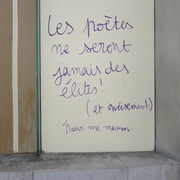 Les poètes
ne seront
jamais des
élites!
(et inversement)
ma maman